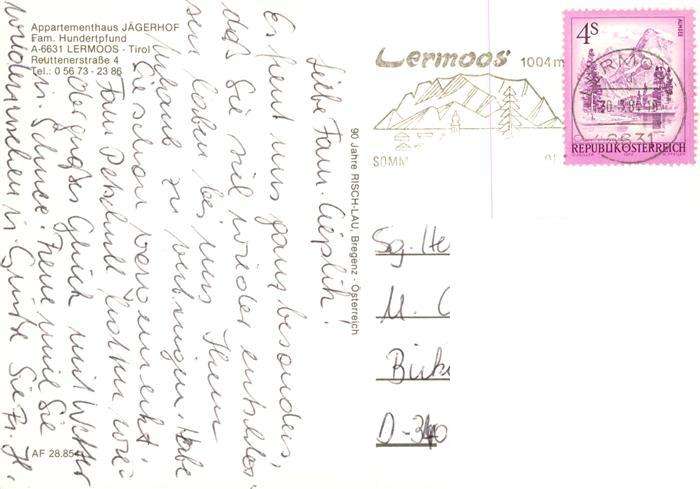 Appartementhaus JÄGERHOF
Fam. Hundertpfund
A-6631 LERMOOS - Tirol
Reuttenerstraße 4
Tel.: 0 56 73 - 23 86
Liebe Fam.
Es freut uns ganz besonders,
daß Sie sich wieder entschlos-
sen haben bei uns Ihren
Urlaub zu verbringen. Habe
Sie schon vorgemerkt.
Fam. hatten wie-
der großes Glück mit Wetter
u. Schnee. Freue mich Sie
wiedersehen zu Grüße Sie Fr. H.
AF 28.854
90 Jahre RISCH-LAU, Bregenz - Österreich
Lermoos 1004m
SOMM
4S
ALMSEE
LERMOOS
6631
REPUBLIK ÖSTERREICH
Sg. He
M. C
Birk
D-340